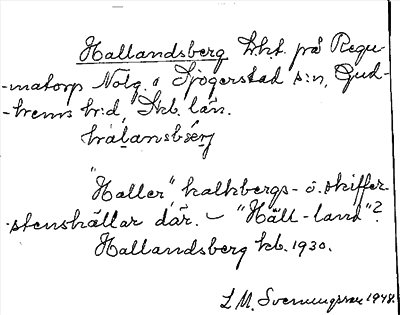 Hallandsberg Lht. på Regu-
-matorp Nolg. i Sjogerstad s:n, Gud-
-hems h:d, Skb. län.
"Haller", kalkbergs- o. skiffer-
-stenshällar där. – "Häll-land"?
Hallandsberg kb. 1930.
L M. Svenungsson 1948.